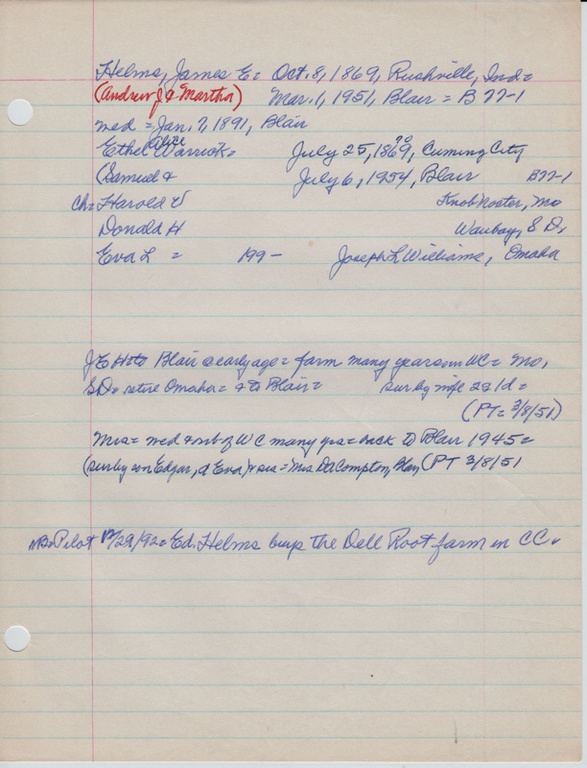 Helms, James E= Oct. 8, 1869, Rushville, Ind=
(Andrew J & Martha) Mar. 1, 1951, Blair = B 77-1
med = Jan. 7, 1891, Blair
Alice
Ethel Warrick= July 25, 1869, Cuming City
70
(Samuel & July 6, 1954, Blair B77-1
Ch= Harold E Knob Noster, Mo
Donald H Waubay, S D,
Eva L = 199- Joseph L Williams, Omaha
J E H to Blair @ early age = farm many years in WC = Mo,
SD= retire Omaha = & to Blair = sur by wife 2s 1d =
(PT= 3/8/51)
Mrs = med & of WC many yrs = back to Blair 1945=
(sur by son Edgar, d Eva) & sis = Mrs Compton, Blair (PT 3/8/51
NB= Pilot 12/29/92= Ed. Helms buys the Dell Root farm in CC.